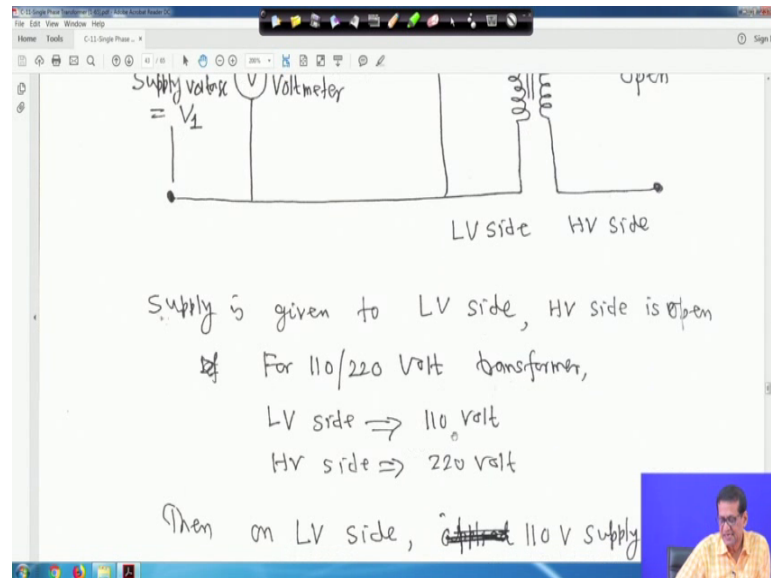 C-11-Single Phase Transformer (1-65).pdf - Adobe Acrobat Reader DC
File Edit View Window Help
Home Tools C-11-Single Phase ... × Sign
43 / 65 200%
Supply voltage V Voltmeter
= V1
open
LV side HV side
Supply is given to LV side, HV side is open
For 110/220 Volt transformer,
LV side ⇒ 110 volt
HV side ⇒ 220 volt
Then on LV side, 110 V supply